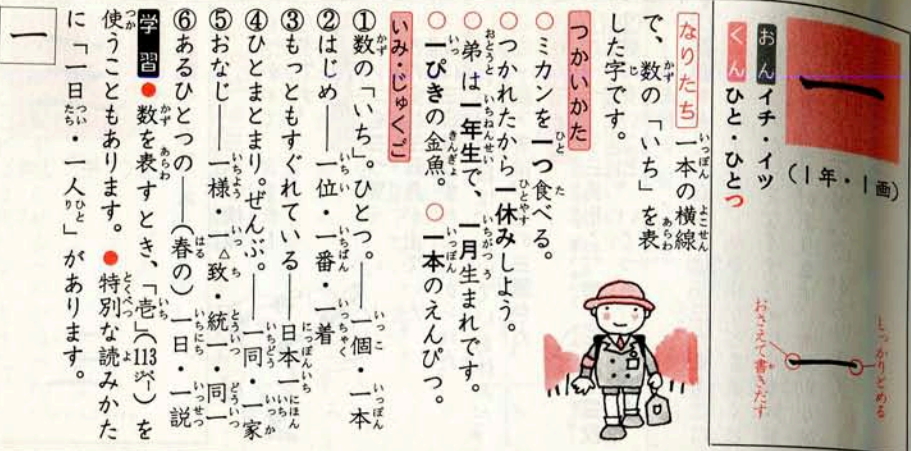 一
(1年・1画)
おん イチ・イツ
くん ひと・ひとつ
しっかりとめる
おさえて書きだす
なりたち 一本の横線
で、数の「いち」を表
した字です。
つかいかた
○ミカンを一つ食べる。
○つかれたから一休みしよう。
○弟は一年生で、一月生まれです。
○一ぴきの金魚。 ○一本のえんぴつ。
いみ・じゅくご
①数の「いち」。ひとつ。――一個・一本
②はじめ――一位・一番・一着
③もっともすぐれている――日本一
④ひとまとまり。ぜんぶ。――一同・一家
⑤おなじ――一様・一致・統一・同一
⑥あるひとつの――(春の)一日・一説
学習 ●数を表すとき、「壱」(113ページ)を
使うこともあります。 ●特別な読みかた
に「一日・一人」があります。
一